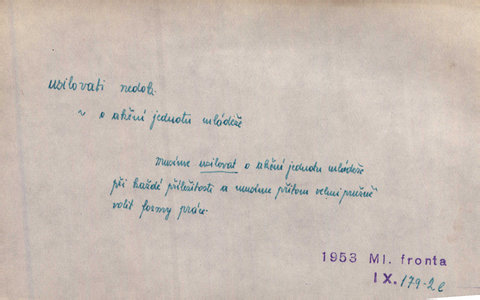 usilovati nedok.
~ o akční jednotu mládeže
musíme usilovat o akční jednotu mládeže
při každé příležitosti a musíme přitom velmi pružně
volit formy práce.
1953 Ml. fronta
IX. 179-2c